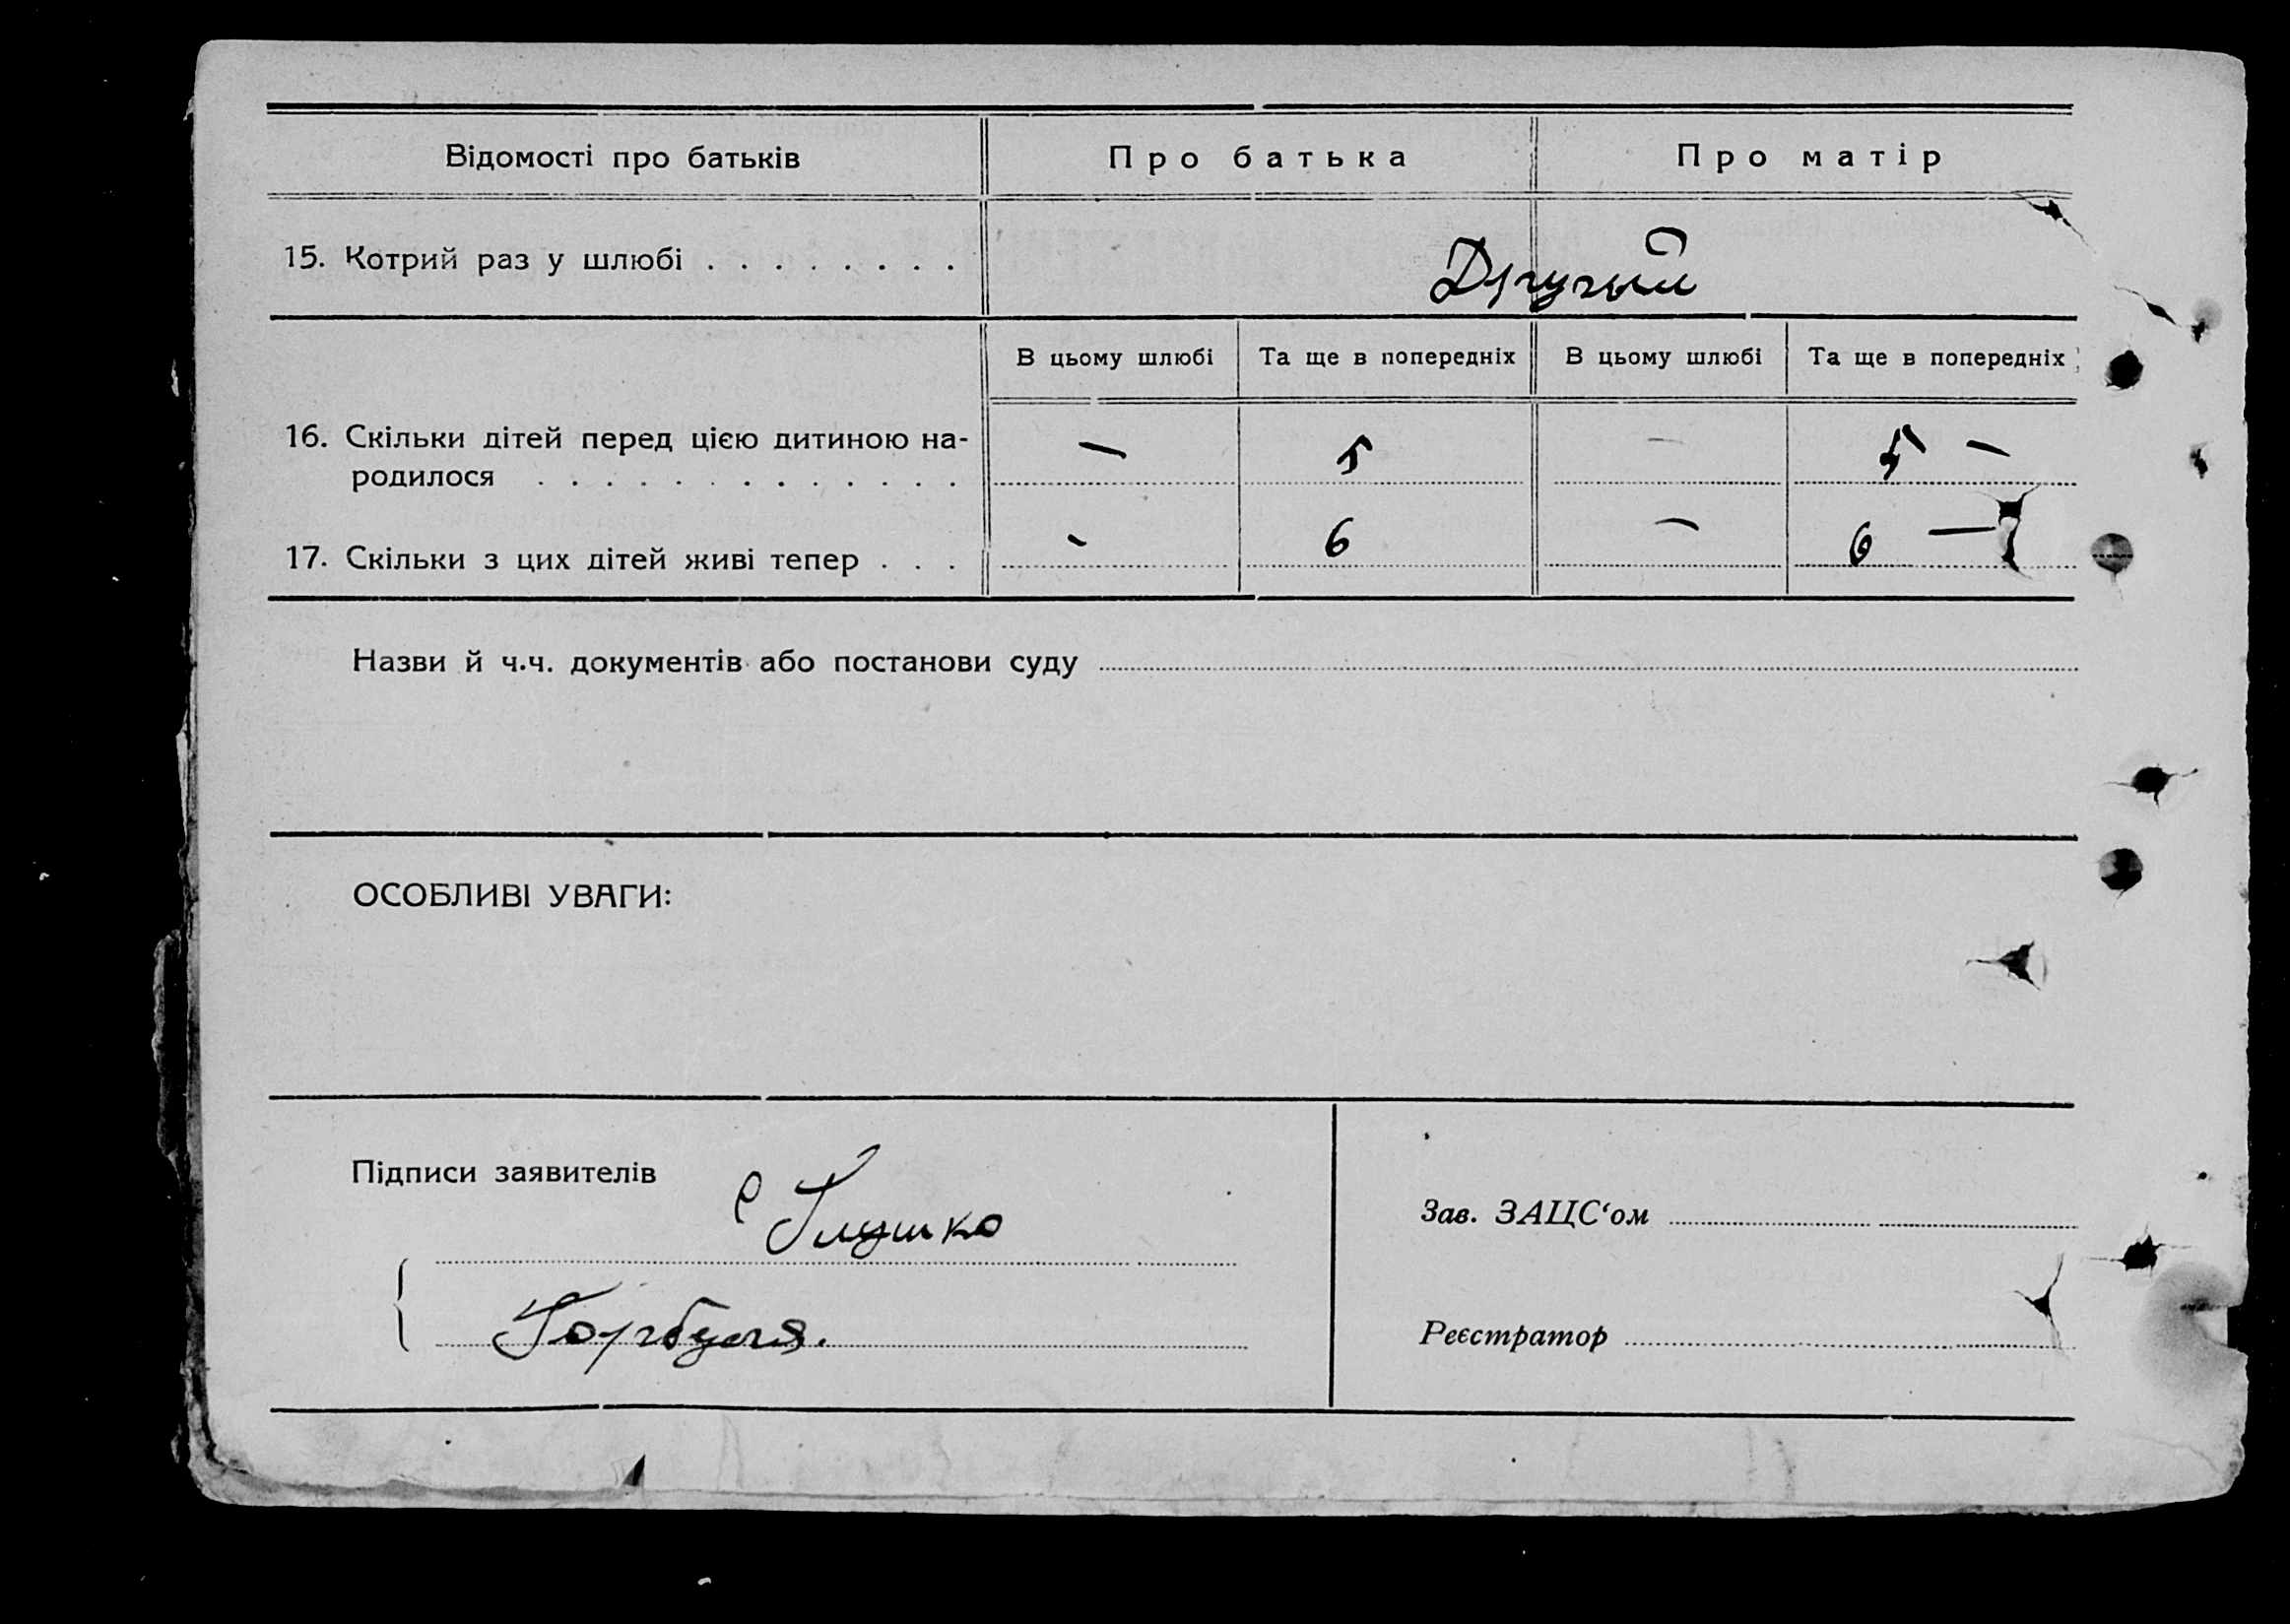 Відомості про батьків Про батька Про матір
15. Котрий раз у шлюбі . . . . . . . .
В цьому шлюбі Та ще в попередніх В цьому шлюбі Та ще в попередніх
16. Скільки дітей перед цією дитиною на-
родилося . . . . . . . . . . . . . — 5 — 5 —
17. Скільки з цих дітей живі тепер . . . - 6 — 6 —
Назви й ч.ч. документів або постанови суду
ОСОБЛИВІ УВАГИ:
Підписи заявителів
Глушко
Зав. ЗАЦС‘ом
Реєстратор